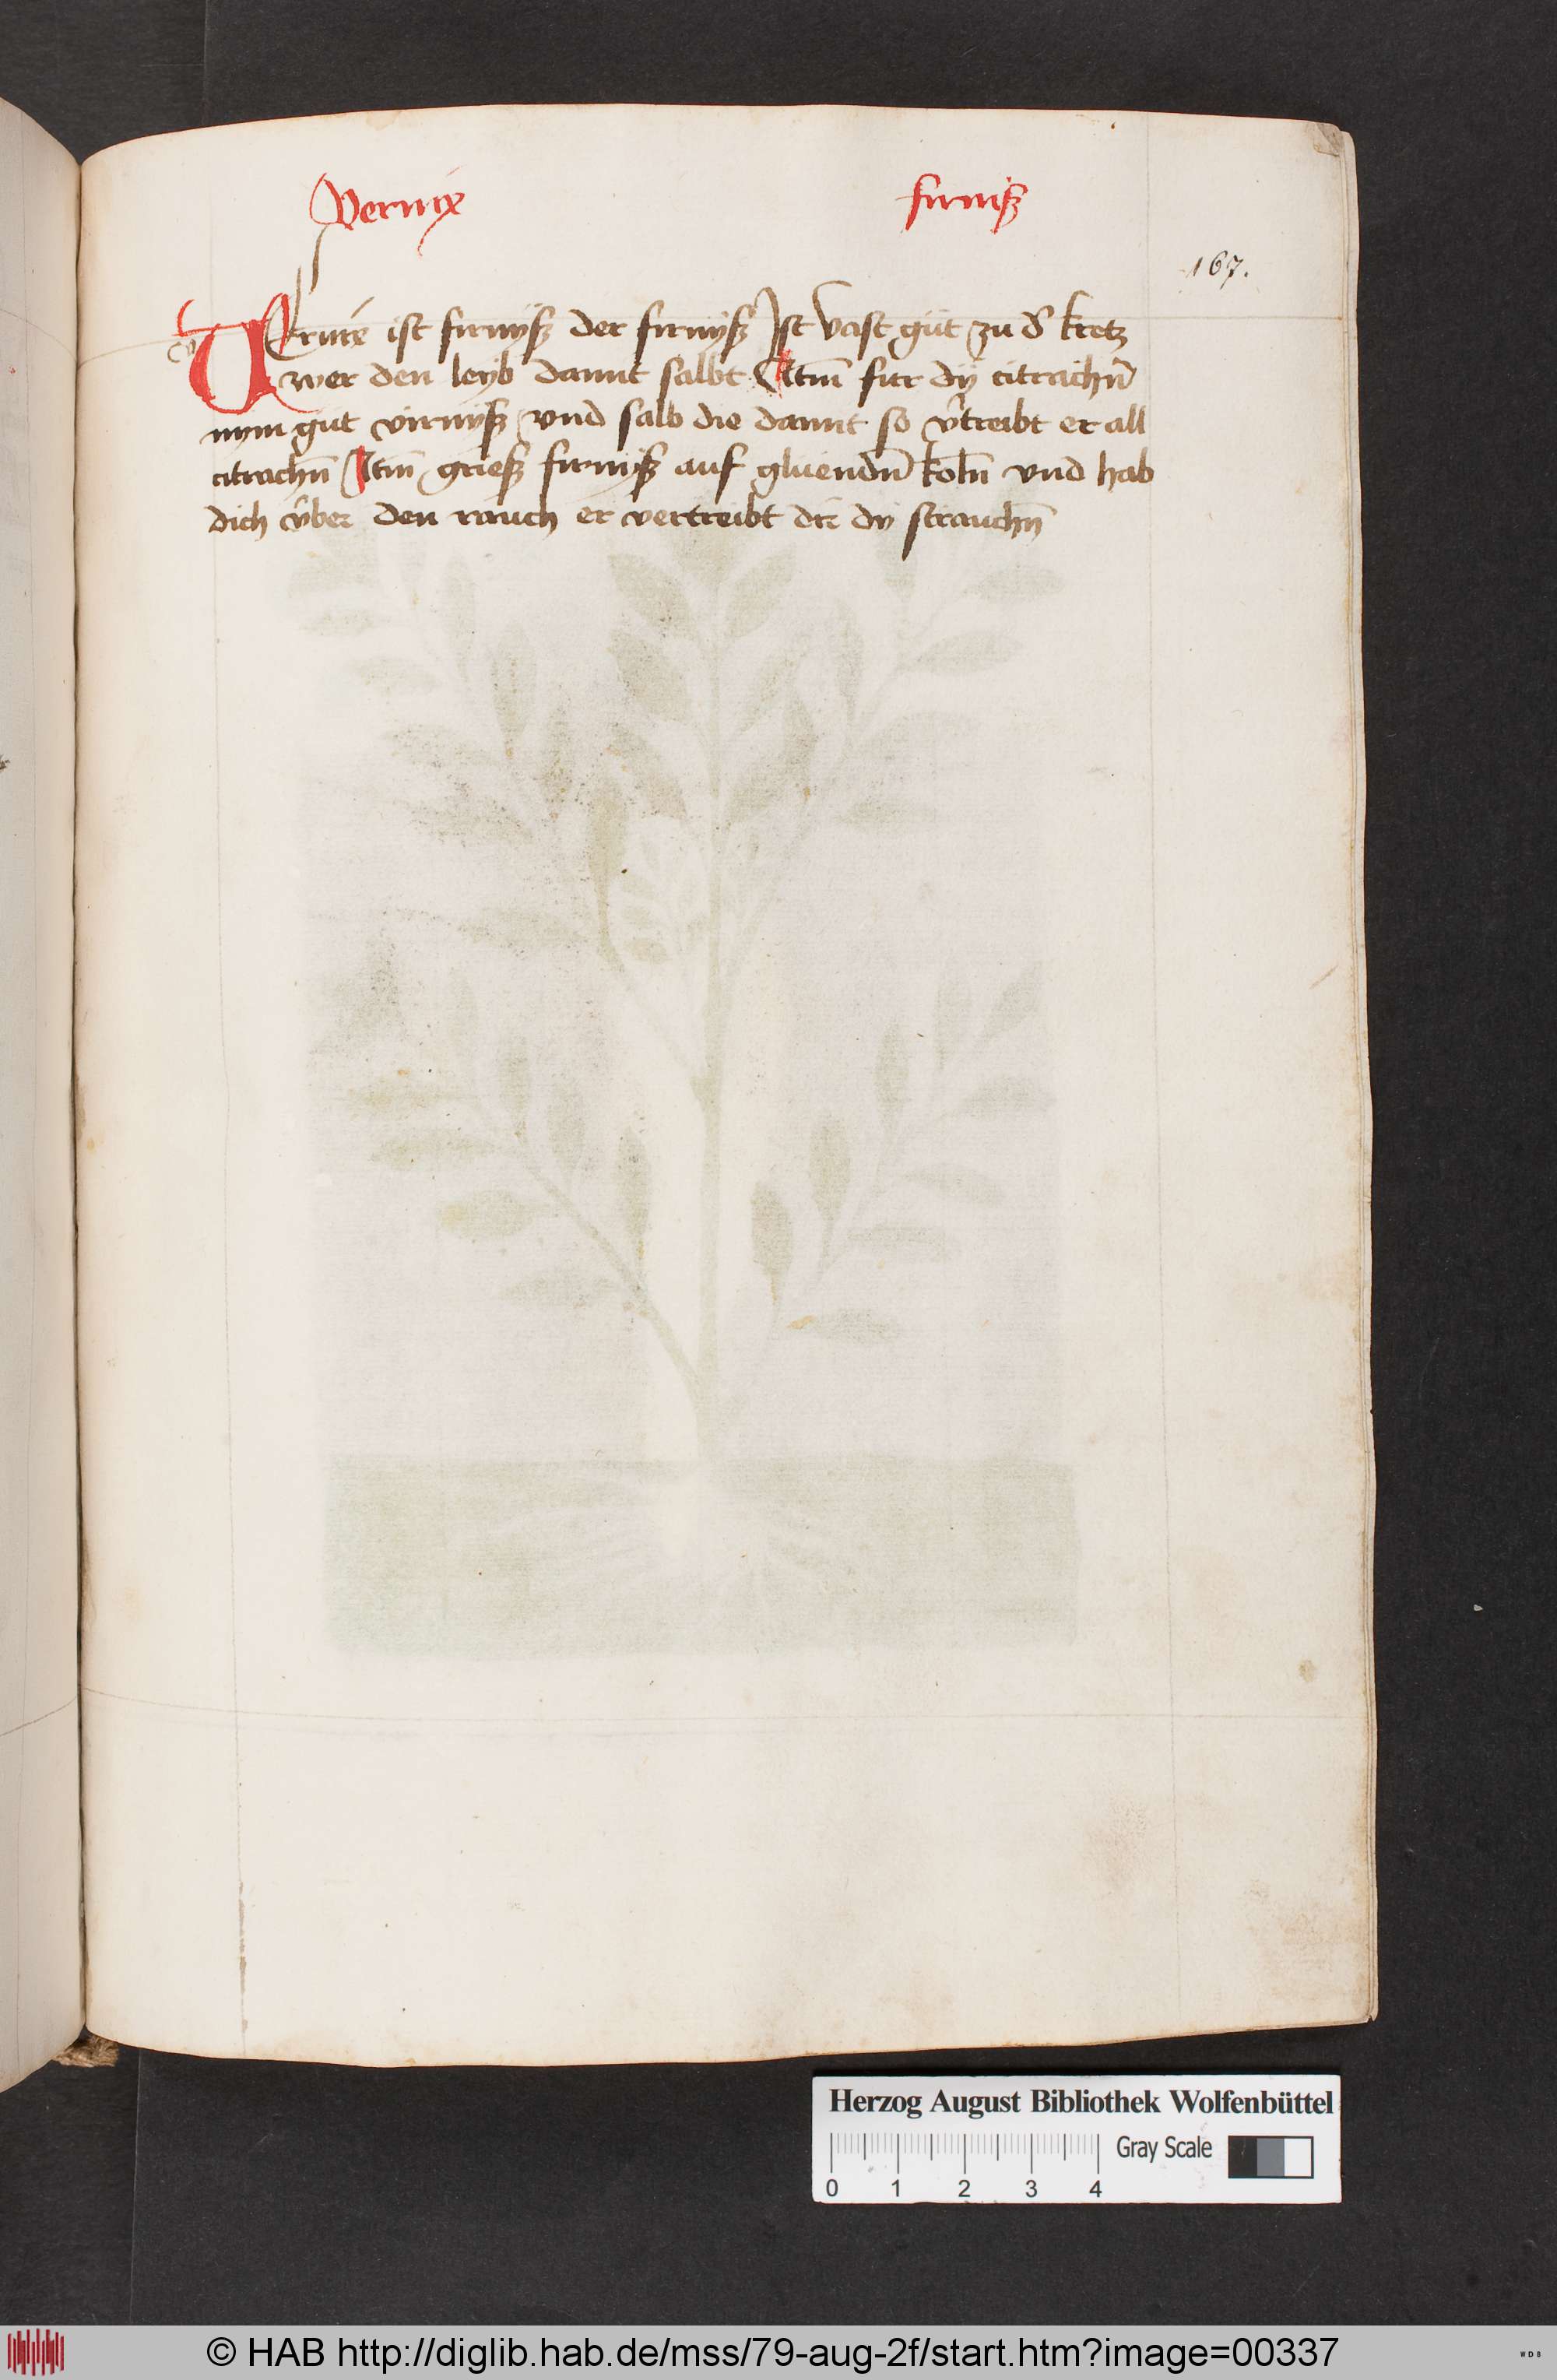 Vernix firniß
167.
VErnix ist firnyß der firnyß Ist vast güt zu dˢ kretz
wer den leyb damit salbt Itm̄ fur dÿ citrachn̄
nym gut virnyß vnd salb die damit so v̂treibt er all
citrachn̄ Itm̄ grieß firnyß auf gluendn̄ koln̄ vnd hab
dich v̂ber den rauch er vertreibt dir dy strauchn̄
Herzog August Bibliothek Wolfenbüttel
Gray Scale
0 1 2 3 4
© HAB http://diglib.hab.de/mss/79-aug-2f/start.htm?image=00337
WDB